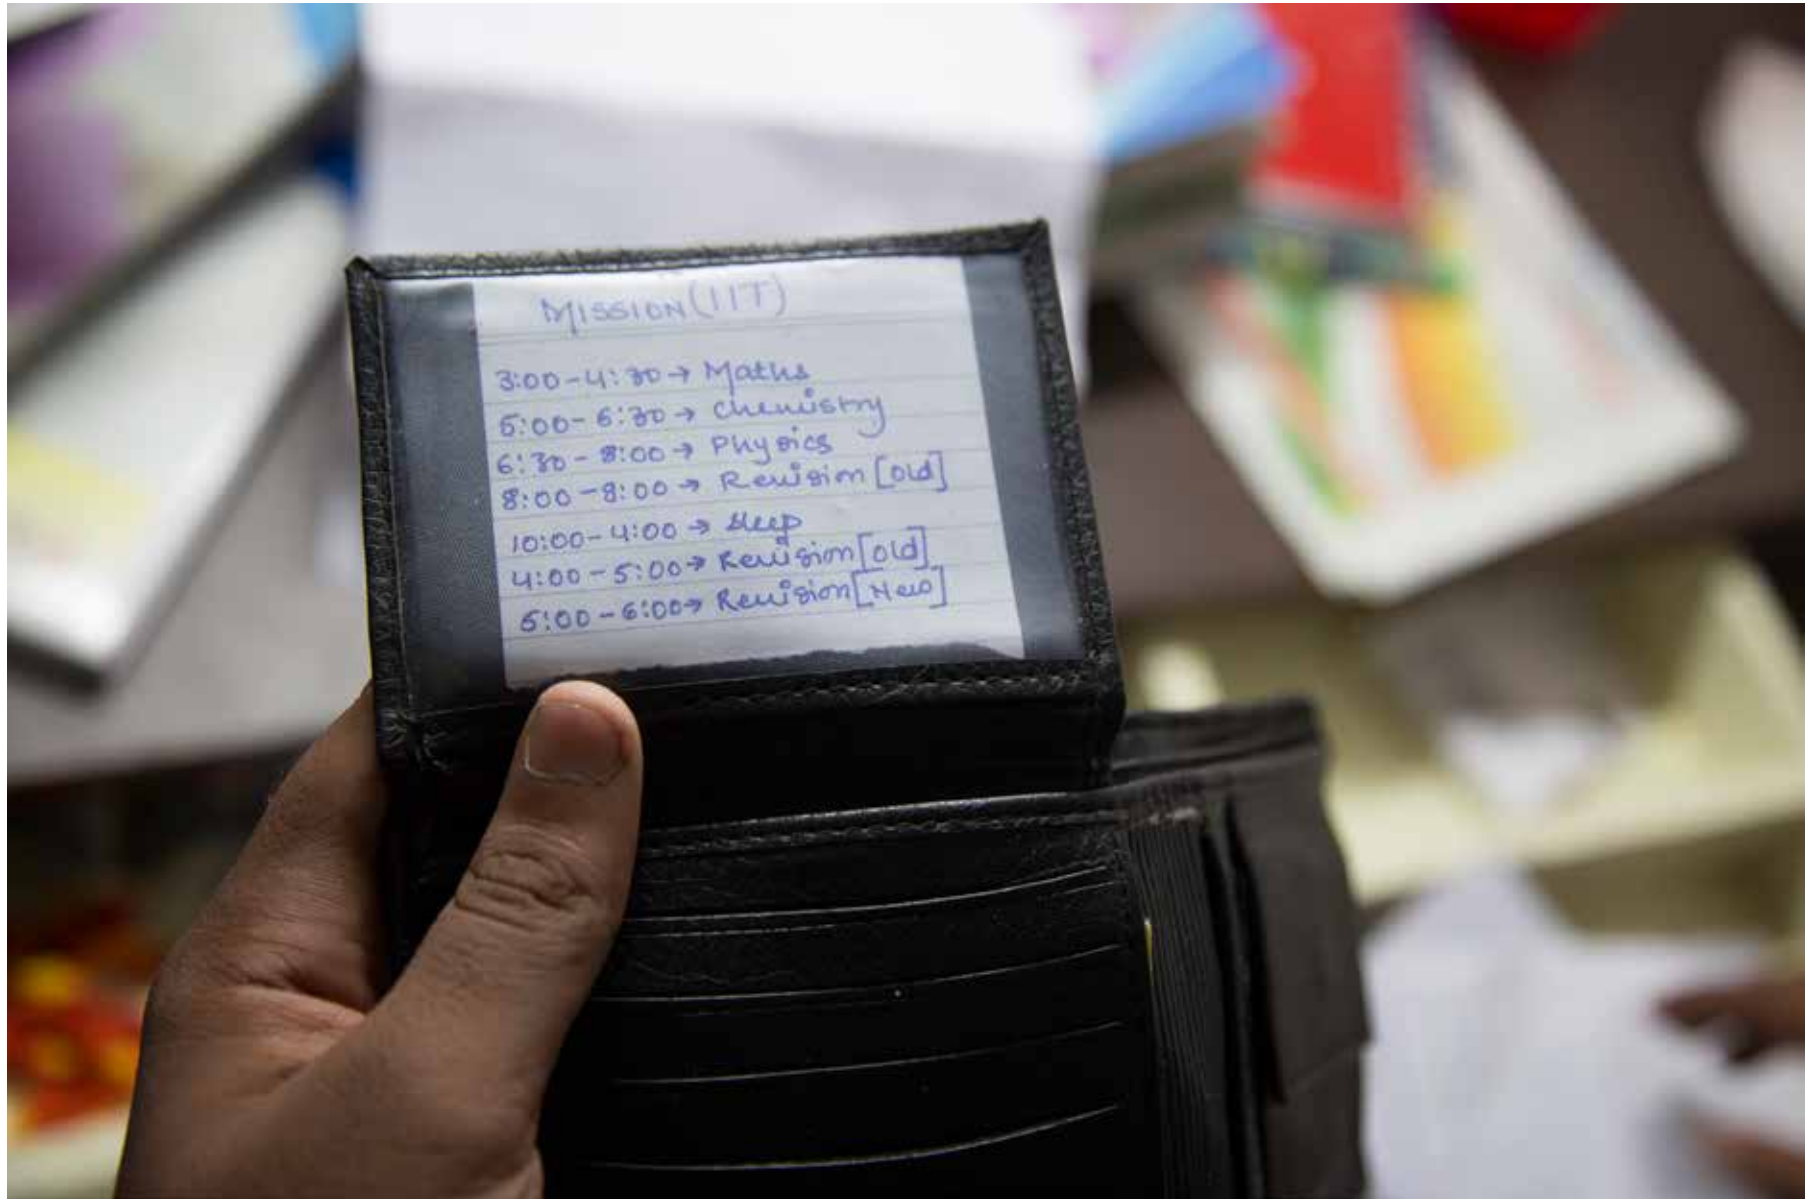 MISSION (IIT)
3:00-4:30 → Maths
5:00-6:30 → Chemistry
6:30-8:00 → Physics
8:00-9:00 → Revision [old]
10:00-4:00 → sleep
4:00-5:00 → Revision [old]
5:00-6:00 → Revision [New]